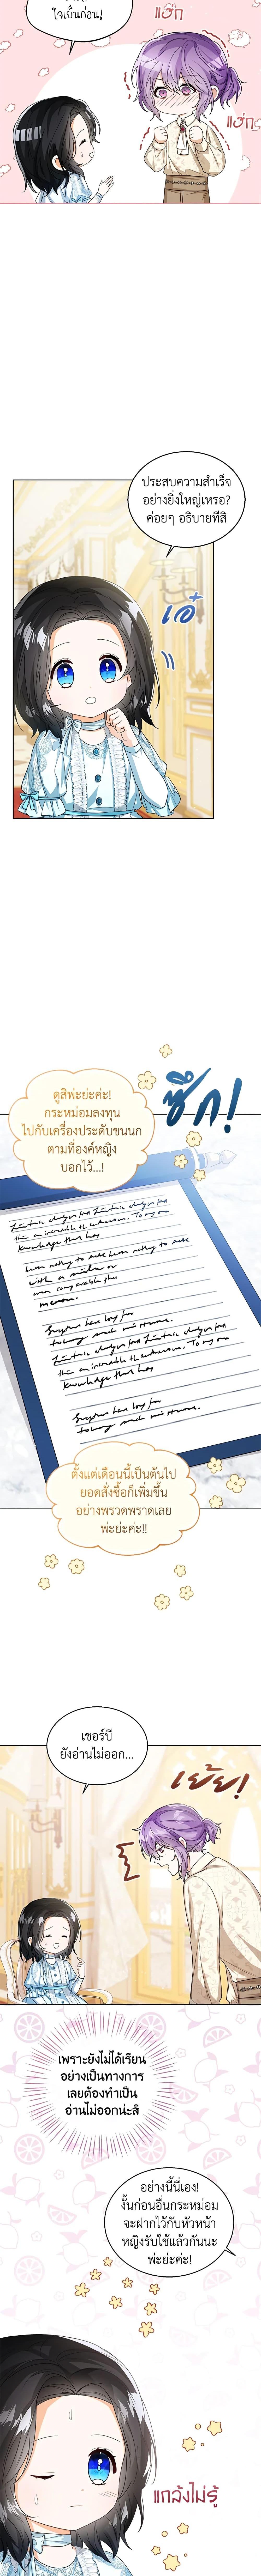 ใจเย็นก่อน!
แฮ่ก
แฮ่ก
ประสบความสำเร็จ
อย่างยิ่งใหญ่เหรอ?
ค่อยๆ อธิบายทีสิ
เอ๋
ซึก!
ดูสิพ่ะย่ะค่ะ!
กระหม่อมลงทุน
ไปกับเครื่องประดับขนนก
ตามที่องค์หญิง
บอกไว้...!
ตั้งแต่เดือนนี้เป็นต้นไป
ยอดสั่งซื้อก็เพิ่มขึ้น
อย่างพรวดพราดเลย
พ่ะย่ะค่ะ!!
เชอร์บี
ยังอ่านไม่ออก...
เย้ย!
เพราะยังไม่ได้เรียน
อย่างเป็นทางการ
เลยต้องทำเป็น
อ่านไม่ออกน่ะสิ
อย่างนี้นี่เอง!
งั้นก่อนอื่นกระหม่อม
จะฝากไว้กับหัวหน้า
หญิงรับใช้แล้วกันนะ
พ่ะย่ะค่ะ!
แกล้งไม่รู้